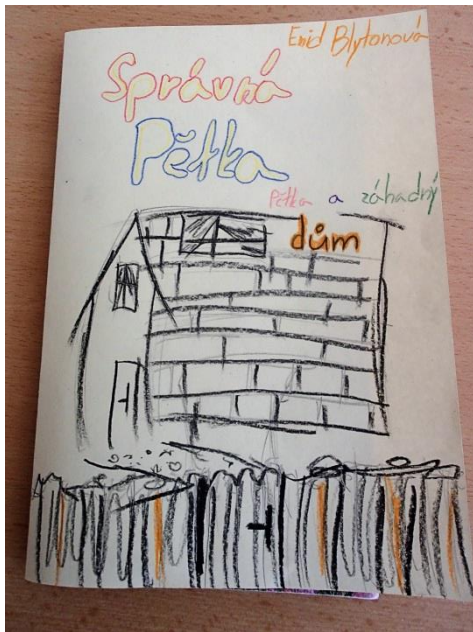 Enid Blytonová
Správná
Pětka
Pětka a záhadný
dům